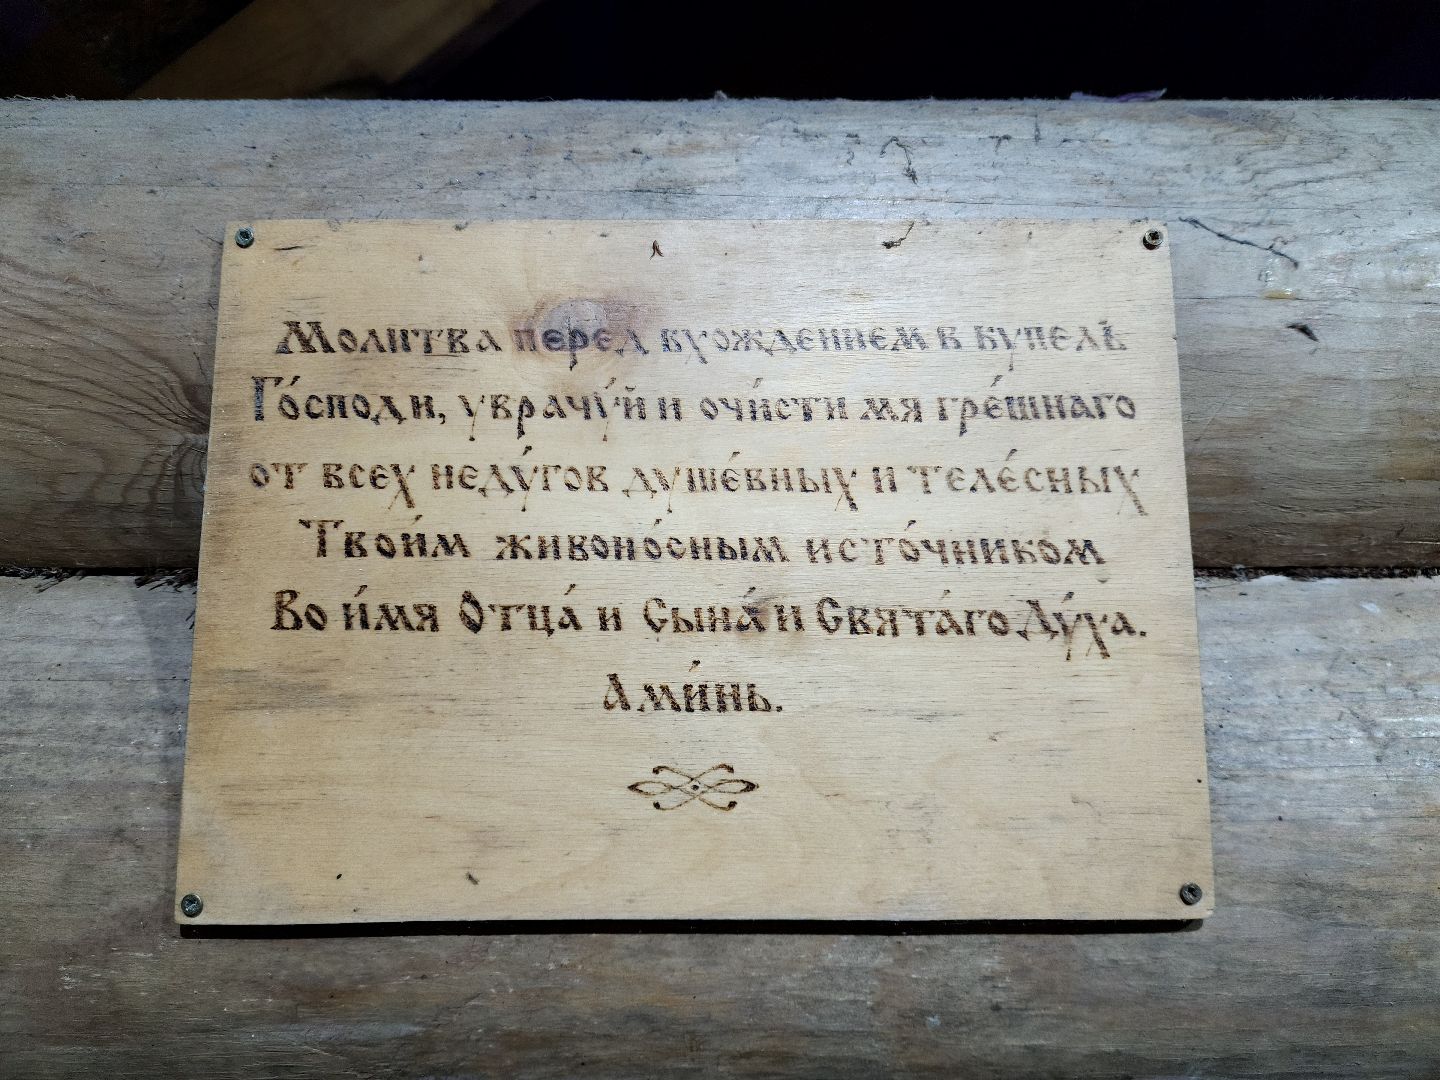 Молитва перед вхождением в купель
Го́споди, уврачу́й и очи́сти мя гре́шнаго
от всех неду́гов душе́вных и теле́сных
Твои́м живоно́сным исто́чником
Во и́мя Отца́ и Сына́ и Свята́го Ду́ха.
Ами́нь.